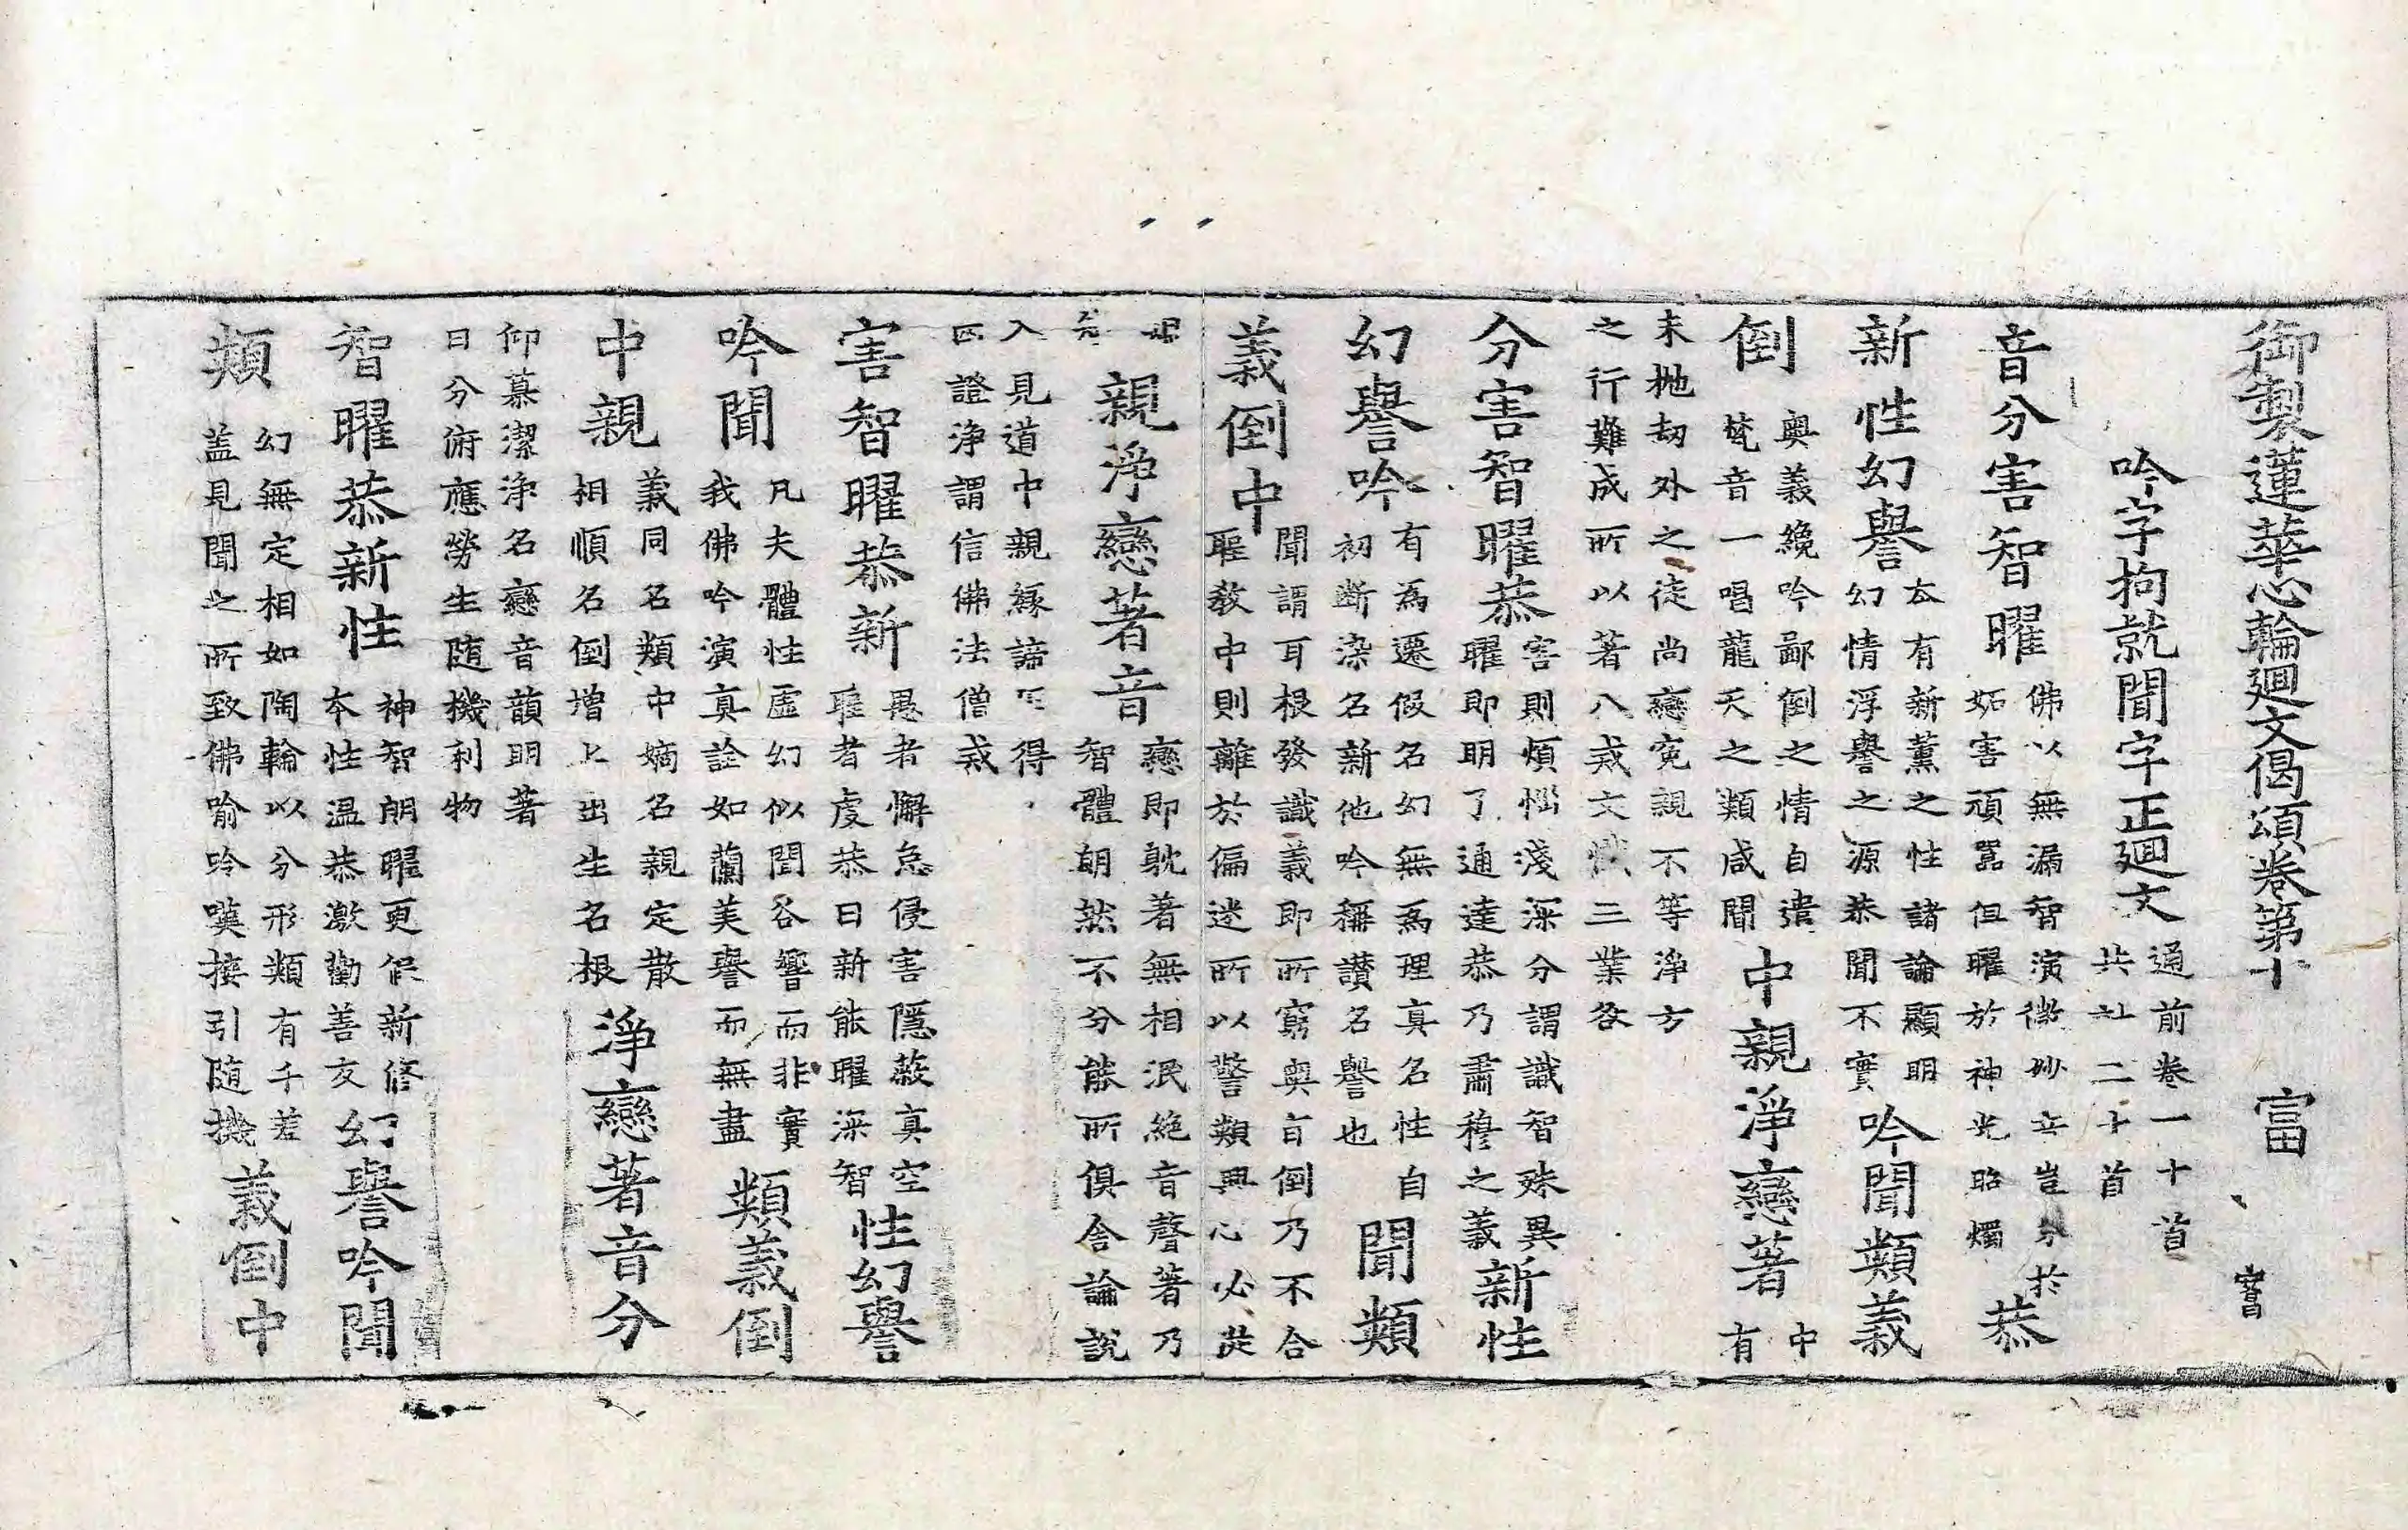 御製蓮華心輪廻文偈頌卷第十 富
吟字拘就聞字正廻文 通前卷一十首 共 二十首
音分害智曜 佛以無漏智演微妙 豈分於 妬害頑嚚但曜於神光昭燭 恭
新性幻譽 夲有新薰之性諸論顯明 幻情浮譽之源恭聞不實 吟聞類義
倒 奥義纔吟鄙倒之情自遣 梵音一唱龍天之類咸聞 中親淨戀著 中 有
末抛劫外之徒尚戀寃親不等淨方
之行難成所以著八戒文 三業各
分害智曜恭 害則煩惱淺深分謂識智殊異 曜即明了通達恭乃肅穆之義 新性
幻譽吟 有為遷假名幻無為理真名性自 初斷染名新他吟稱讃名譽也 聞類
義倒中 聞謂耳根發識義即所窮奥盲倒乃不合 聖教中則離於偏迷所以警類興心必從
親淨戀著音 戀即躭著無相泯絶音聲著乃 智體朗然不分能所俱舍論說
入見道中親緣諦 得
匹證淨謂信佛法僧戒
害智曜恭新 愚者懈怠侵害隱蔽真空 聖者虔恭日新能曜深智 性幻譽
吟聞 凡夫體性虛幻似聞谷響而非實 我佛吟演真詮如蘭美譽而無盡 類義倒
中親 義同名類中嫡名親定散 相順名倒增上出生名根 淨戀著音分
仰慕潔淨名戀音韻明著
日分俯應勞生随機利物
智曜恭新性 神智朗曜更假新修 夲性温恭激勸善友 幻譽吟聞
類 幻無定相如陶輪以分形類有千差 盖見聞之所致佛喻吟嘆接引随機 義倒中